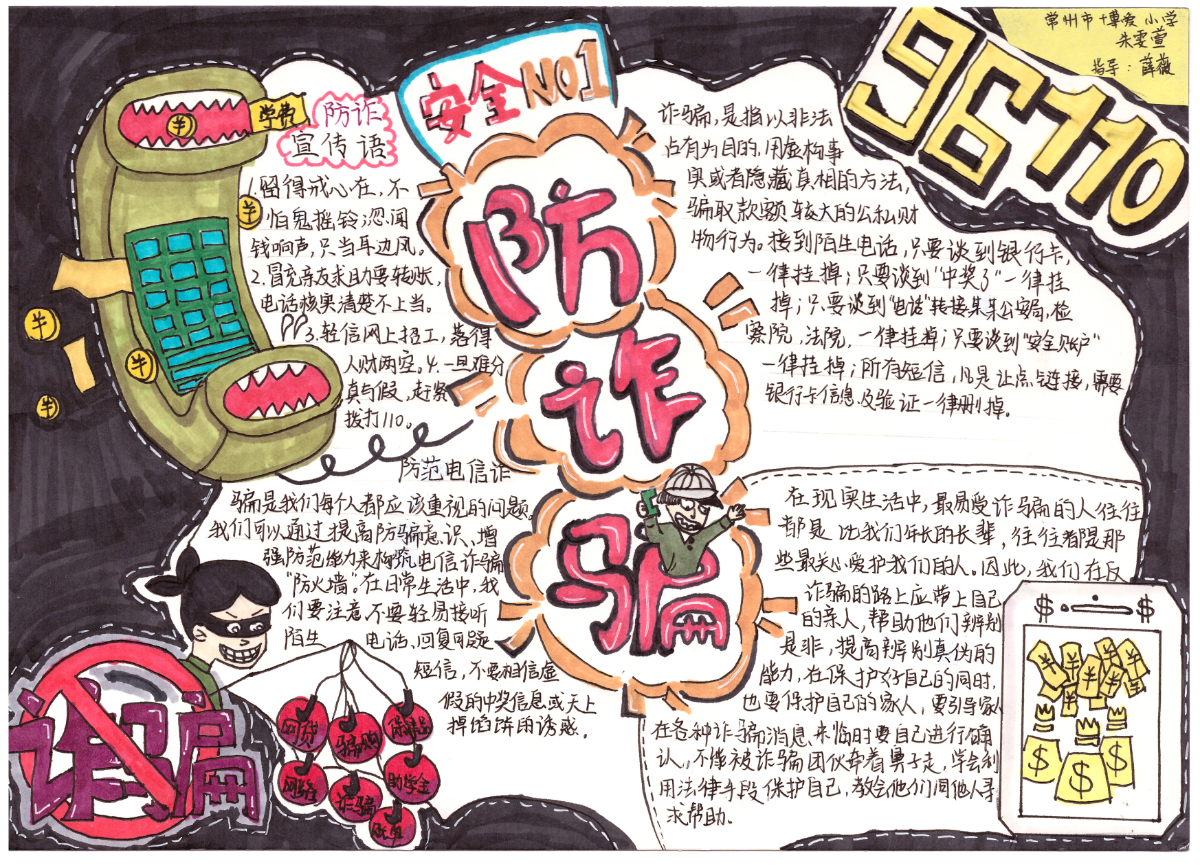 常州市博爱小学
朱雯萱
指导：薛薇
96110
安全NO1
防诈骗
学费
防诈
宣传语
1.留得戒心在，不
怕鬼摇铃忽闻
钱响声，只当耳边风。
2.冒充亲友求助要转账，
电话核实清楚不上当。
3.轻信网上招工，落得
人财两空。4.一旦难分
真与假，赶紧
拨打110。
诈骗，是指以非法
占有为目的，用虚构事
实或者隐藏真相的方法，
骗取款额较大的公私财
物行为。接到陌生电话，只要谈到银行卡，
一律挂掉；只要谈到"中奖了"一律挂
掉；只要谈到"电话"转接某某公安局，检
察院，法院，一律挂掉；只要谈到"安全账户"
一律挂掉；所有短信，凡是让点与链接，需要
银行卡信息及验证一律删掉。
防范电信诈
骗是我们每个人都应该重视的问题。
我们可以通过提高防骗意识、增
强防范能力来构筑电信诈骗
"防火墙"。在日常生活中，我
们要注意不要轻易接听
陌生 电话、回复可疑
短信，不要相信虚
假的中奖信息或天上
掉馅饼的诱惑。
在现实生活中，最易受诈骗的人往往
都是比我们年长的长辈，往往都是那
些最关心爱护我们的人。因此，我们在反
诈骗的路上应带上自己
的亲人，帮助他们辨别
是非，提高辨别真伪的
能力，在保护好自己的同时，
也要保护自己的家人，要引导家人
在各种诈骗消息来临时要自己进行确
认，不能被诈骗团伙牵着鼻子走，学会利
用法律手段保护自己，教会他们向他人寻
求帮助。
诈骗
网贷
骗购
保健品
诈骗
助学金